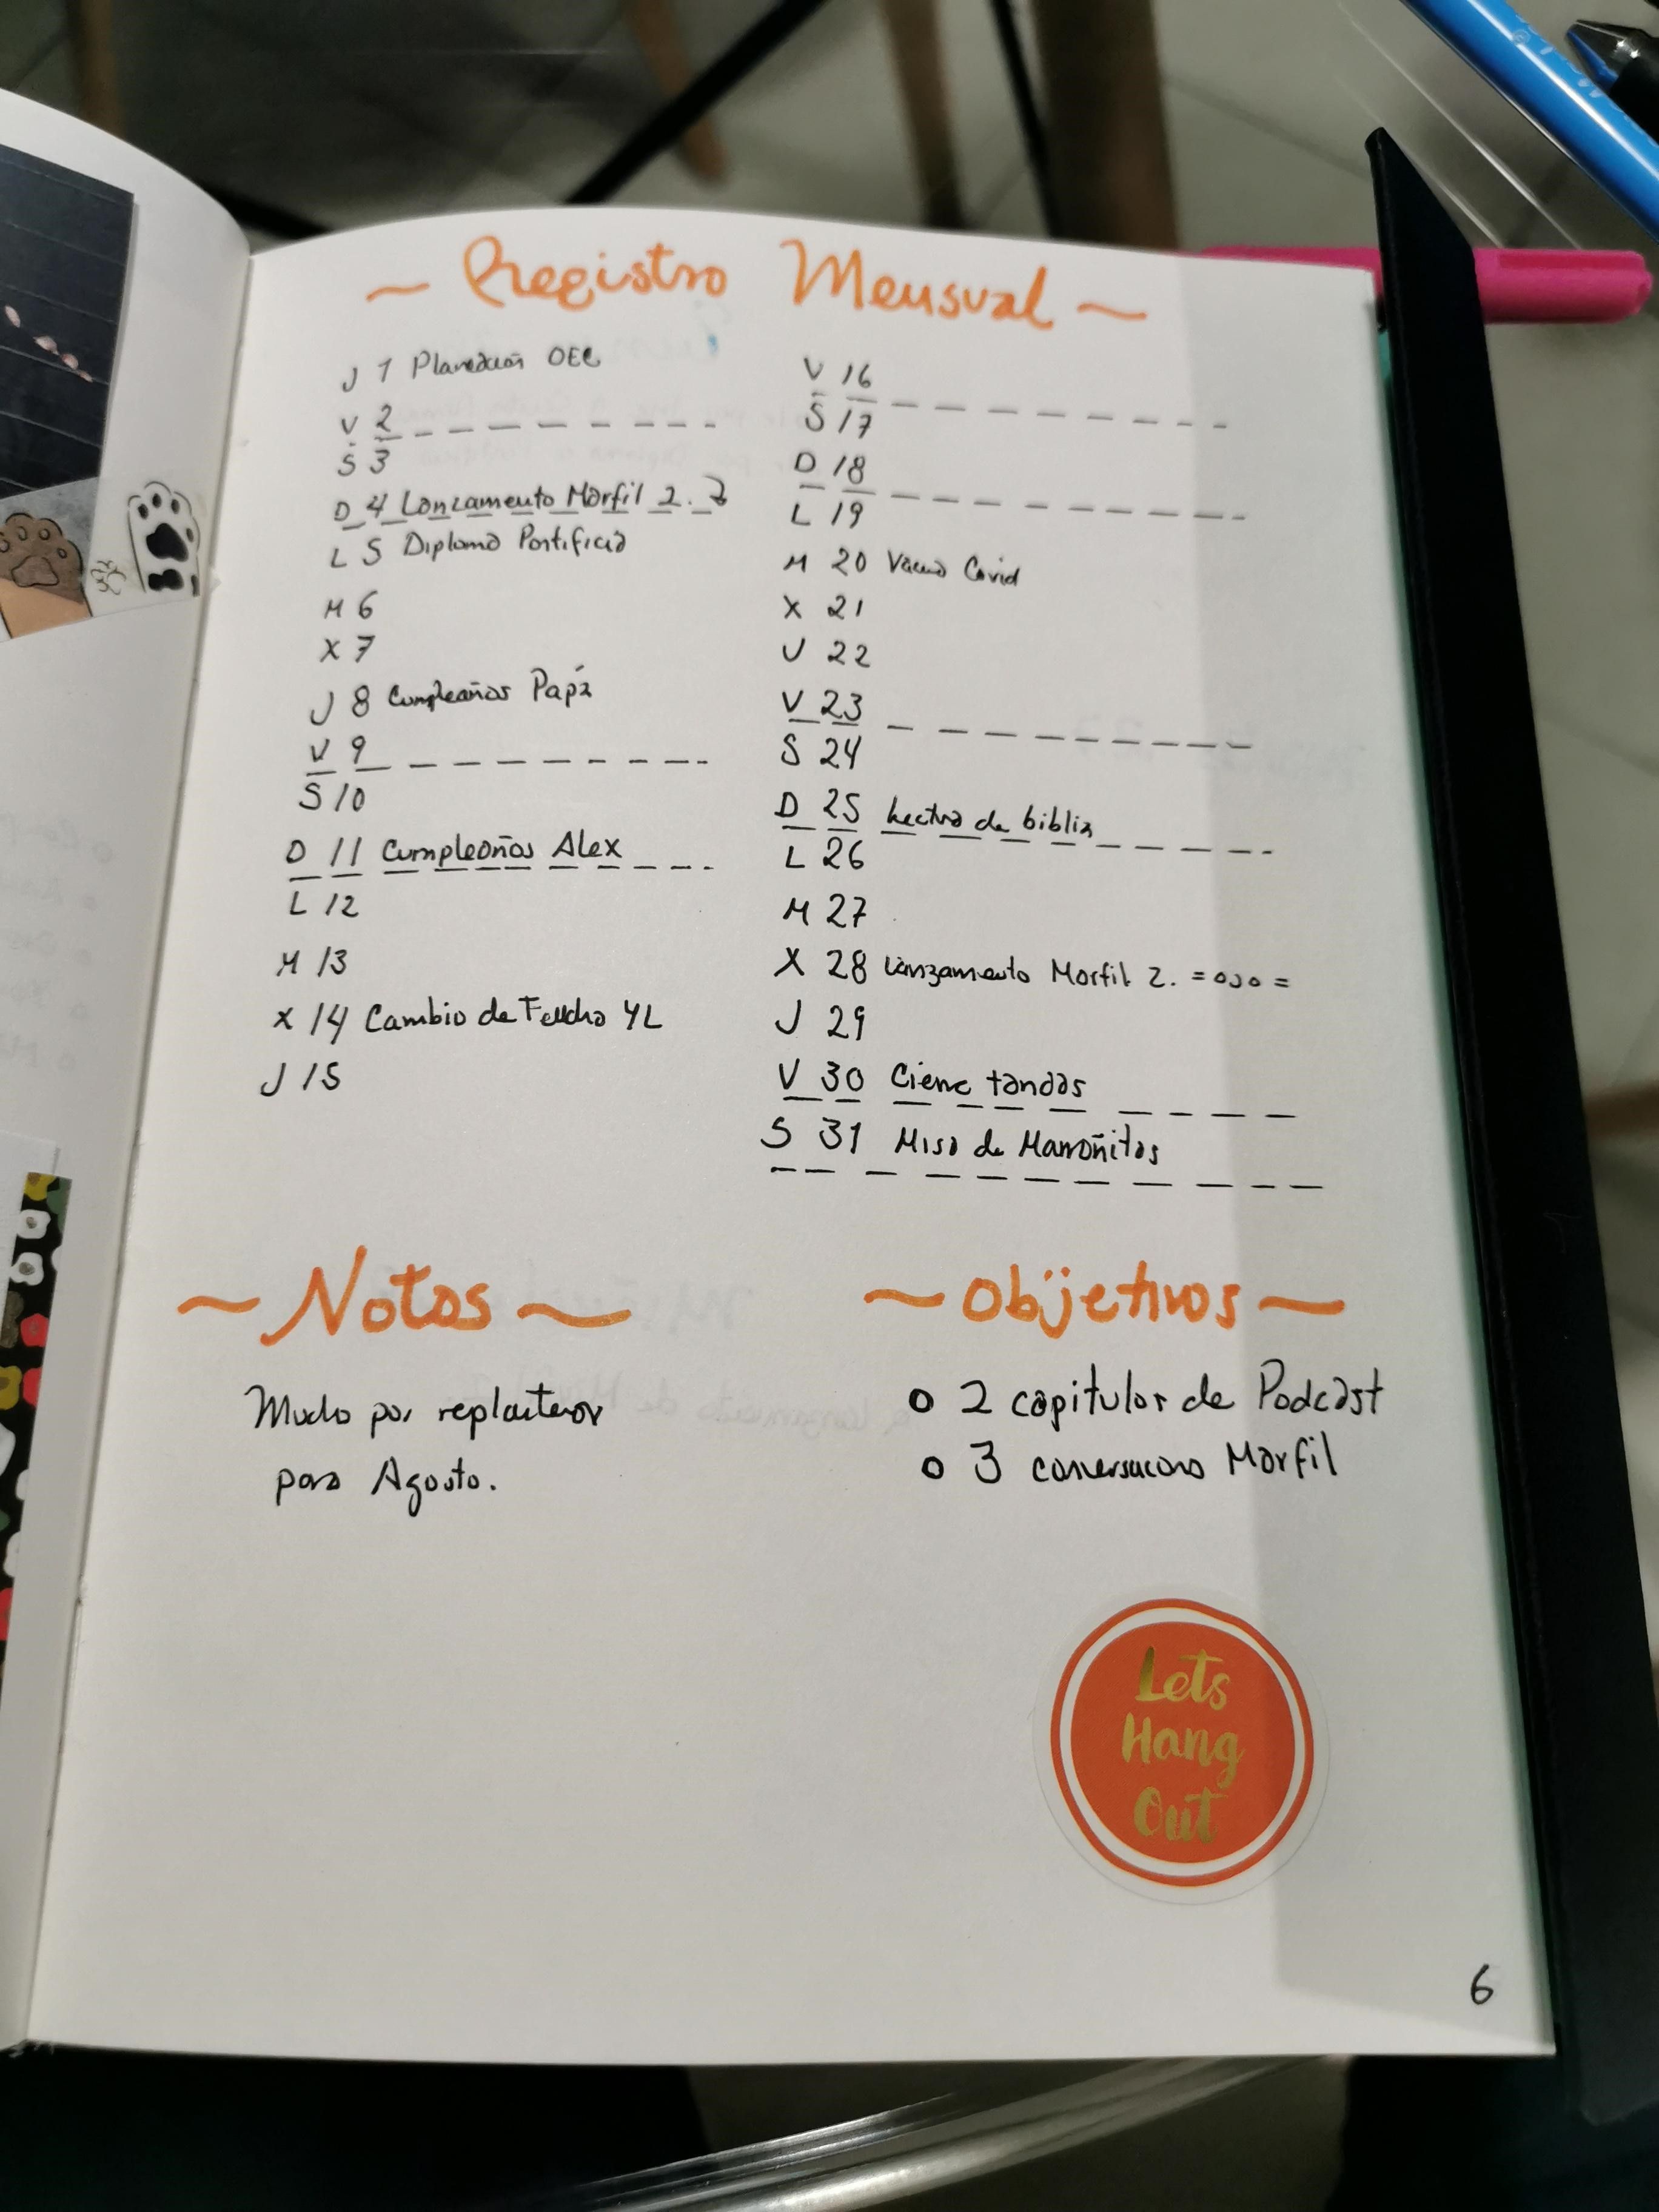 ~ Registro Mensual ~
J 1 Planeación OEC
V 2
S 3
D 4 Lanzamento Marfil 2.
L 5 Diploma Pontificia
M 6
X 7
J 8 Cumpleaños Papá
V 9
S 10
D 11 Cumpleaños Alex
L 12
M 13
X 14 Cambio de YL
J 15
V 16
S 17
D 18
L 19
M 20 Covid
X 21
J 22
V 23
S 24
D 25 Lectura de biblia
L 26
M 27
X 28 Lanzamento Marfil 2. = ojo =
J 29
V 30 Cierre tandas
S 31 Misa de
~ Notas ~
Mucho por replantear
para Agosto.
~ Objetivos ~
o 2 capitulos de Podcast
o 3 Marfil
Lets
Hang
Out
6